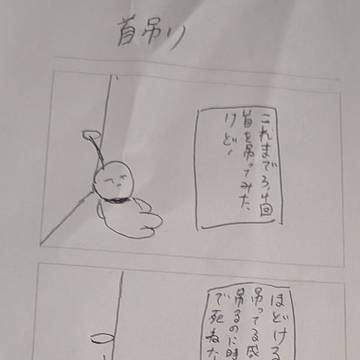 首吊り
これまで3,4回
首を吊ってみた
けど、
ほどける
吊ってる感
吊るのに時
で死ねた